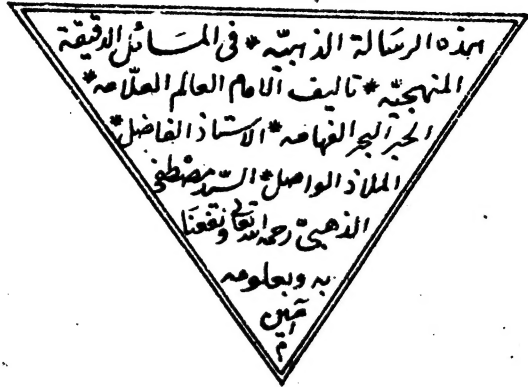 هذه الرسالة الذهبيّة * فى المسائل الدقيقة
المنهجيّه * تاليف الامام العالم العلّامه *
الحبر البحر الفهامه * الاستاذ الفاضل *
الملاذ الواصل * السيّد مصطفى
الذهبىّ رحمه الله تعالى ونفعنا
به وبعلومه
آمين
م